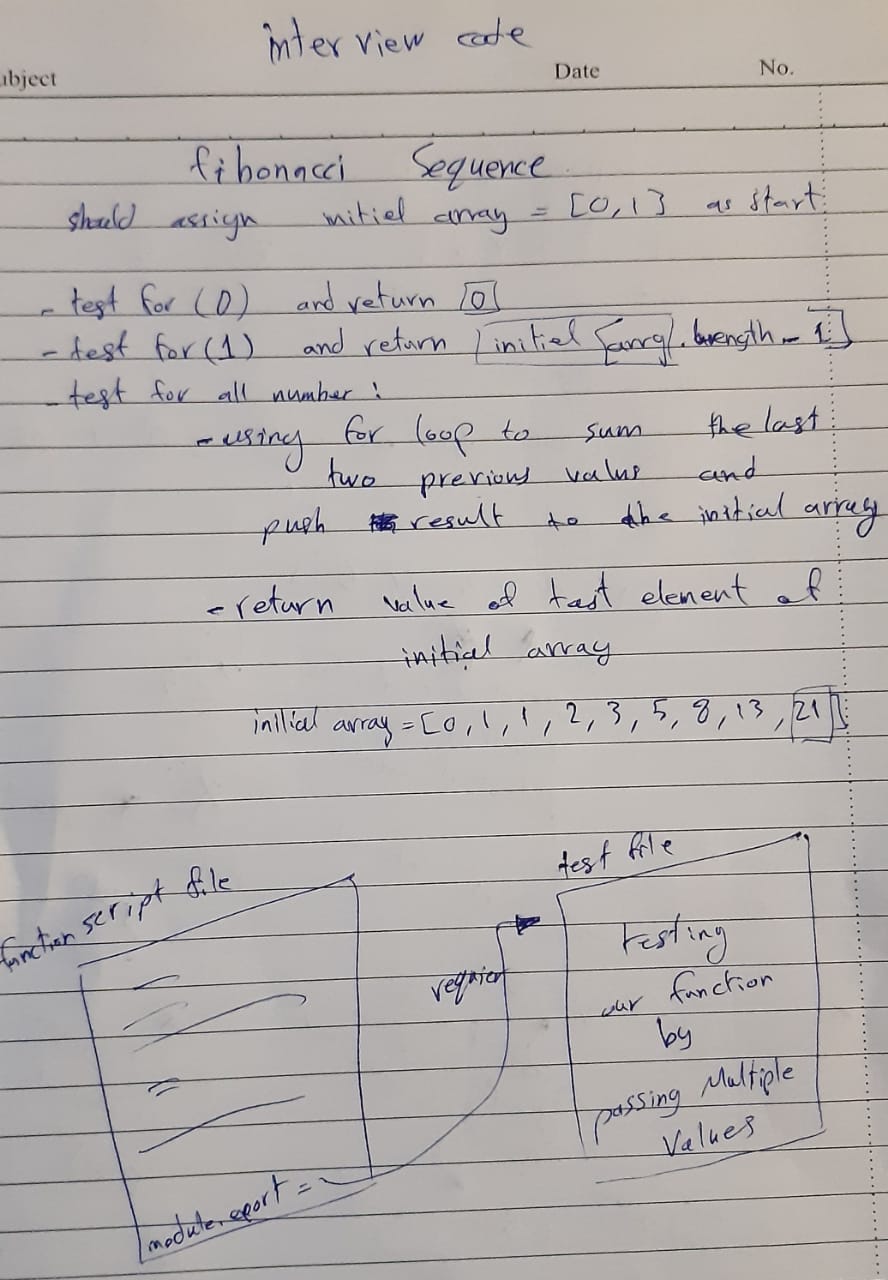 interview code
ubject Date No.
fibonacci Sequence
should assign initiel array = [0,1] as start
- test for (0) and return [0]
- test for (1) and return [initiel [array].length - 1]
- test for all number :
- using for loop to sum the last
two previous value and
push result to the initial array
- return value of last element of
initial array
initial array = [0, 1, 1, 2, 3, 5, 8, 13, 21]
function script file
module.export =
require
test file
testing
our function
by
passing Multiple
Values